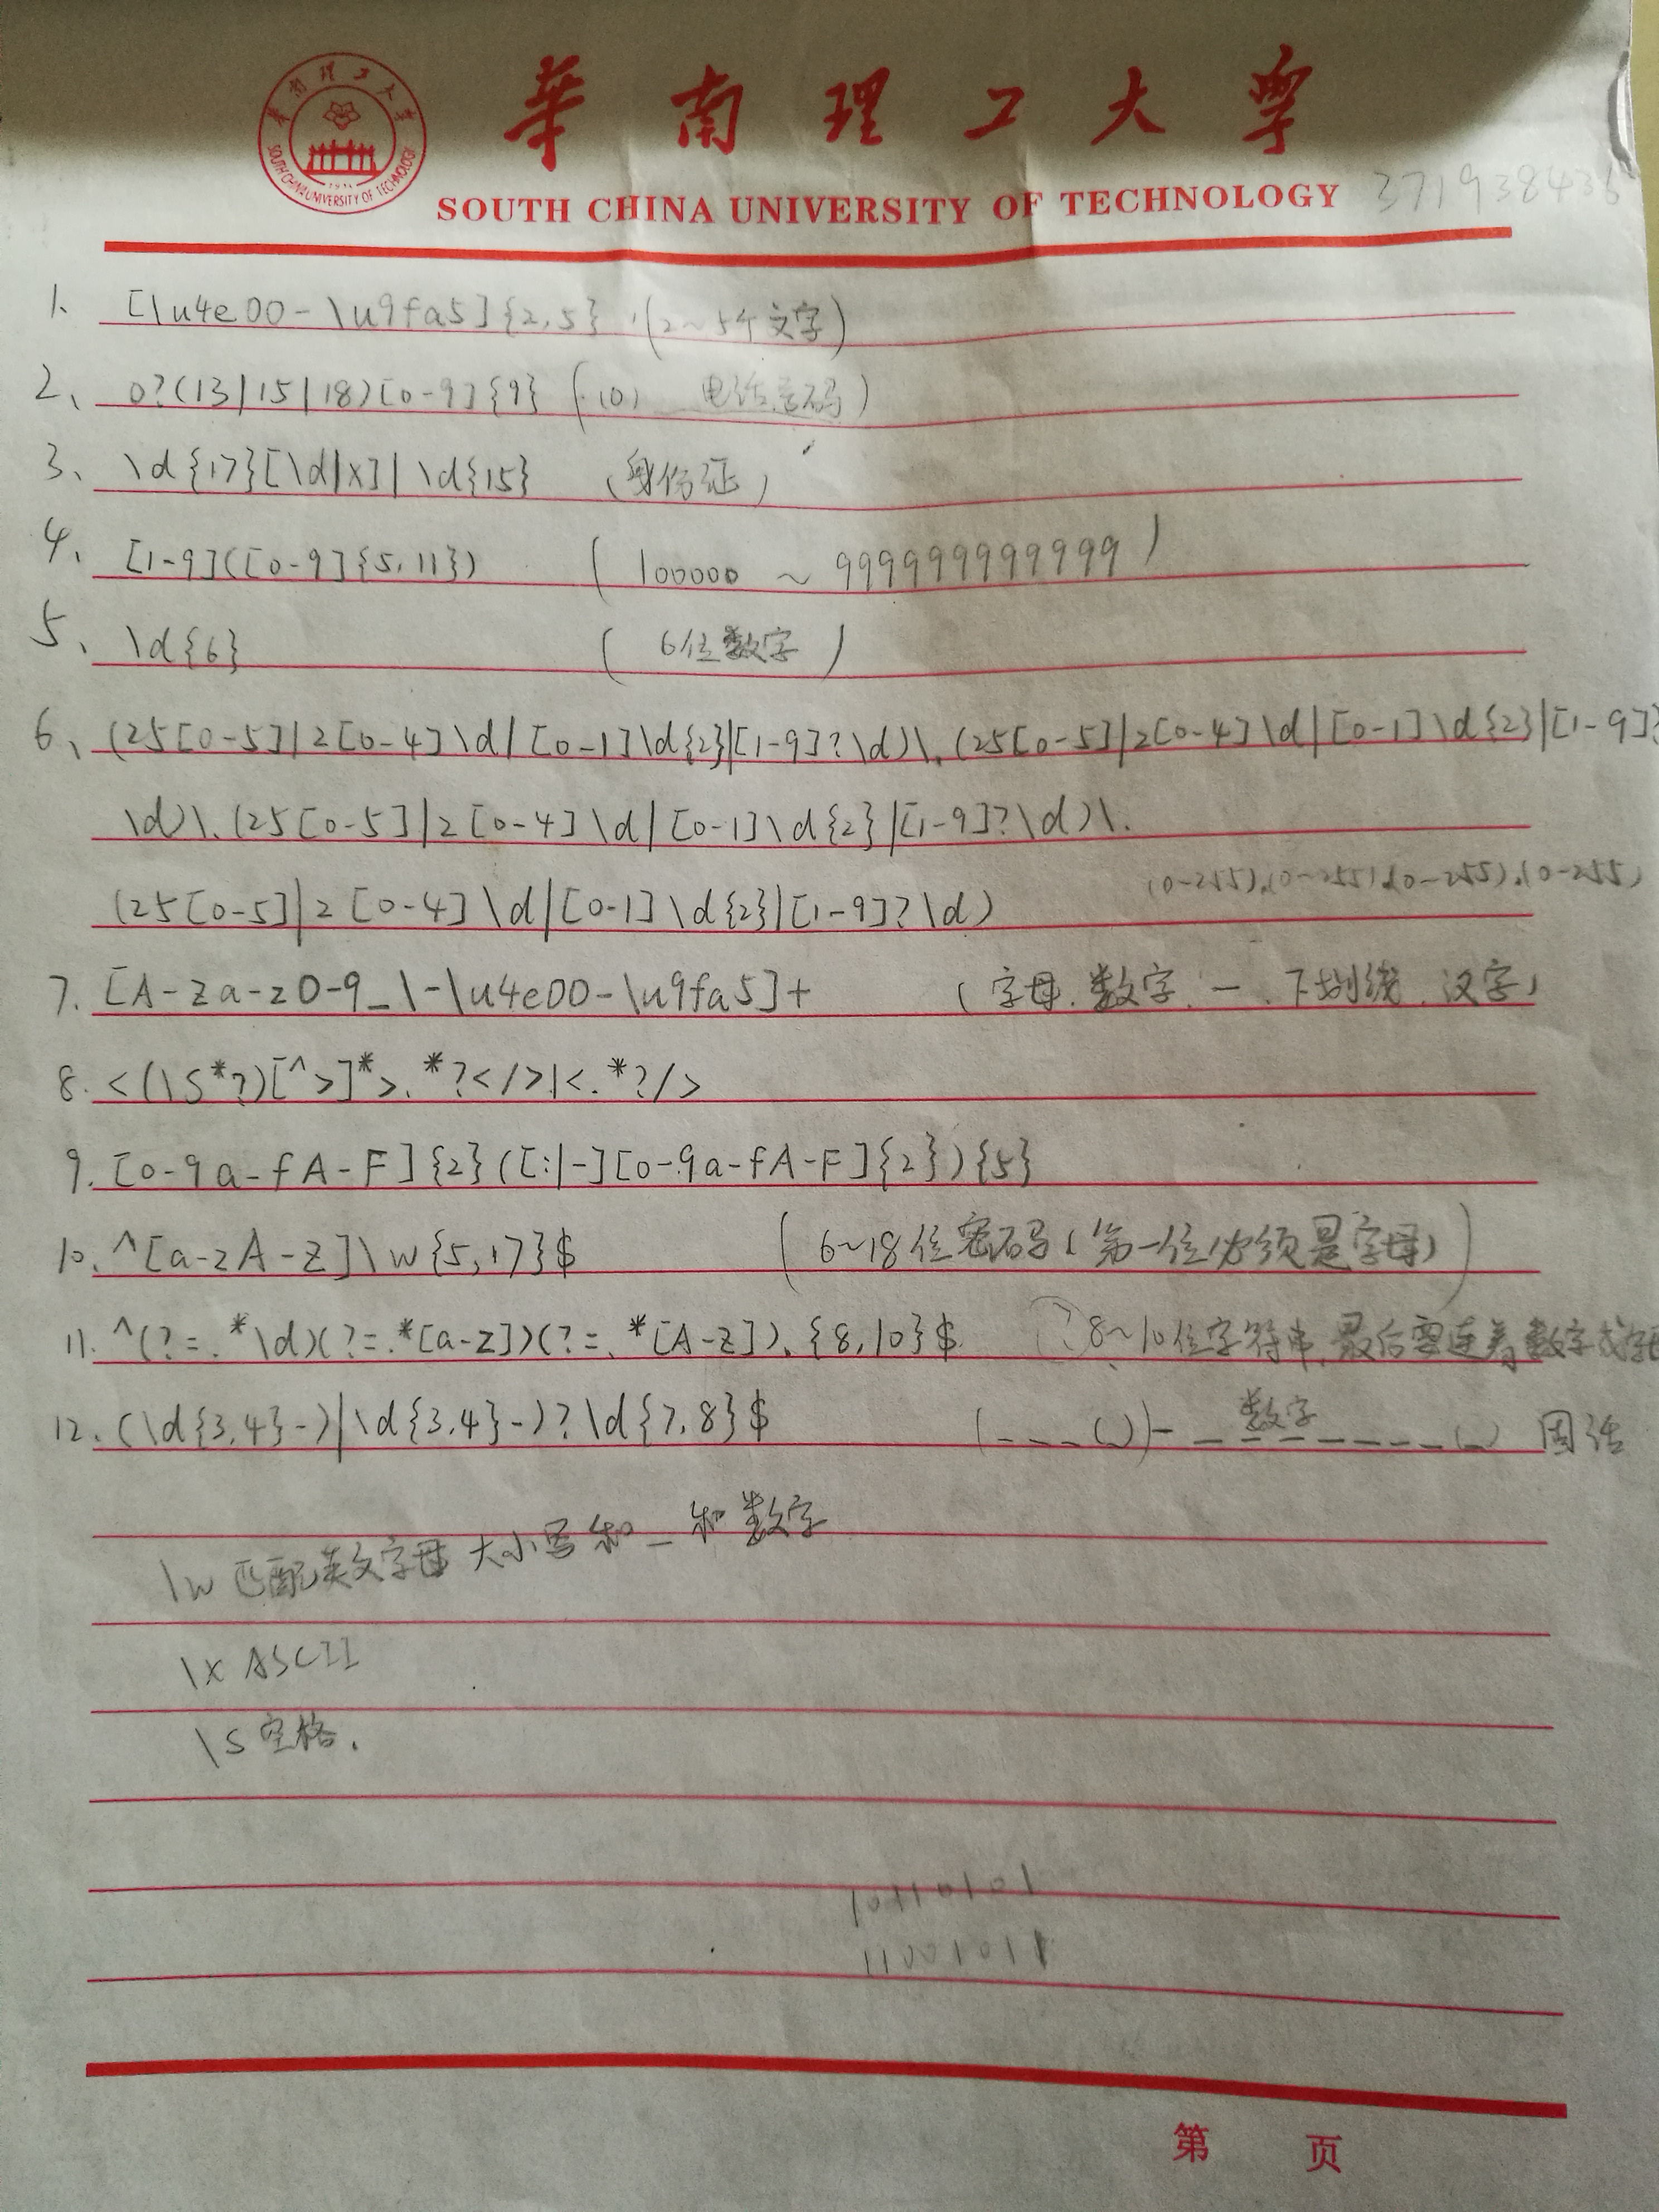 華南理工大學
SOUTH CHINA UNIVERSITY OF TECHNOLOGY
371938436
1. [\u4e00-\u9fa5]{2,5} (2~5个文字)
2、 0?(13|15|18)[0-9]{9} (01 电话号码)
3、 \d{17}[\d|x]|\d{15} (身份证)
4、 [1-9]([0-9]{5,11}) (100000 ~ 999999999999)
5、 \d{6} (6位数字)
6、 (25[0-5]|2[0-4]\d|[0-1]\d{2}|[1-9]?\d)\.(25[0-5]|2[0-4]\d|[0-1]\d{2}|[1-9]?
\d)\.(25[0-5]|2[0-4]\d|[0-1]\d{2}|[1-9]?\d)\.
(0-255).(0-255).(0-255).(0-255)
(25[0-5]|2[0-4]\d|[0-1]\d{2}|[1-9]?\d)
7. [A-Za-z0-9_\-\u4e00-\u9fa5]+ (字母、数字、-、下划线、汉字)
8. <(\S*?)[^>]*>.*?</>|<.*?/>
9. [0-9a-fA-F]{2}([:|-][0-9a-fA-F]{2}){5}
10. ^[a-zA-Z]\w{5,17}$ (6~18位密码(第一位必须是字母))
11. ^(?=.*\d)(?=.*[a-z])(?=.*[A-Z]).{8,10}$ (?)8~10位字符串,最后需连着数字或字母
12. (\d{3,4}-)|\d{3,4}-)?\d{7,8}$ (___(_))-数字_______(_) 固话
\w 匹配英文字母大小写和_和数字
\x ASCII
\s 空格.
10110101
11001011
第 页